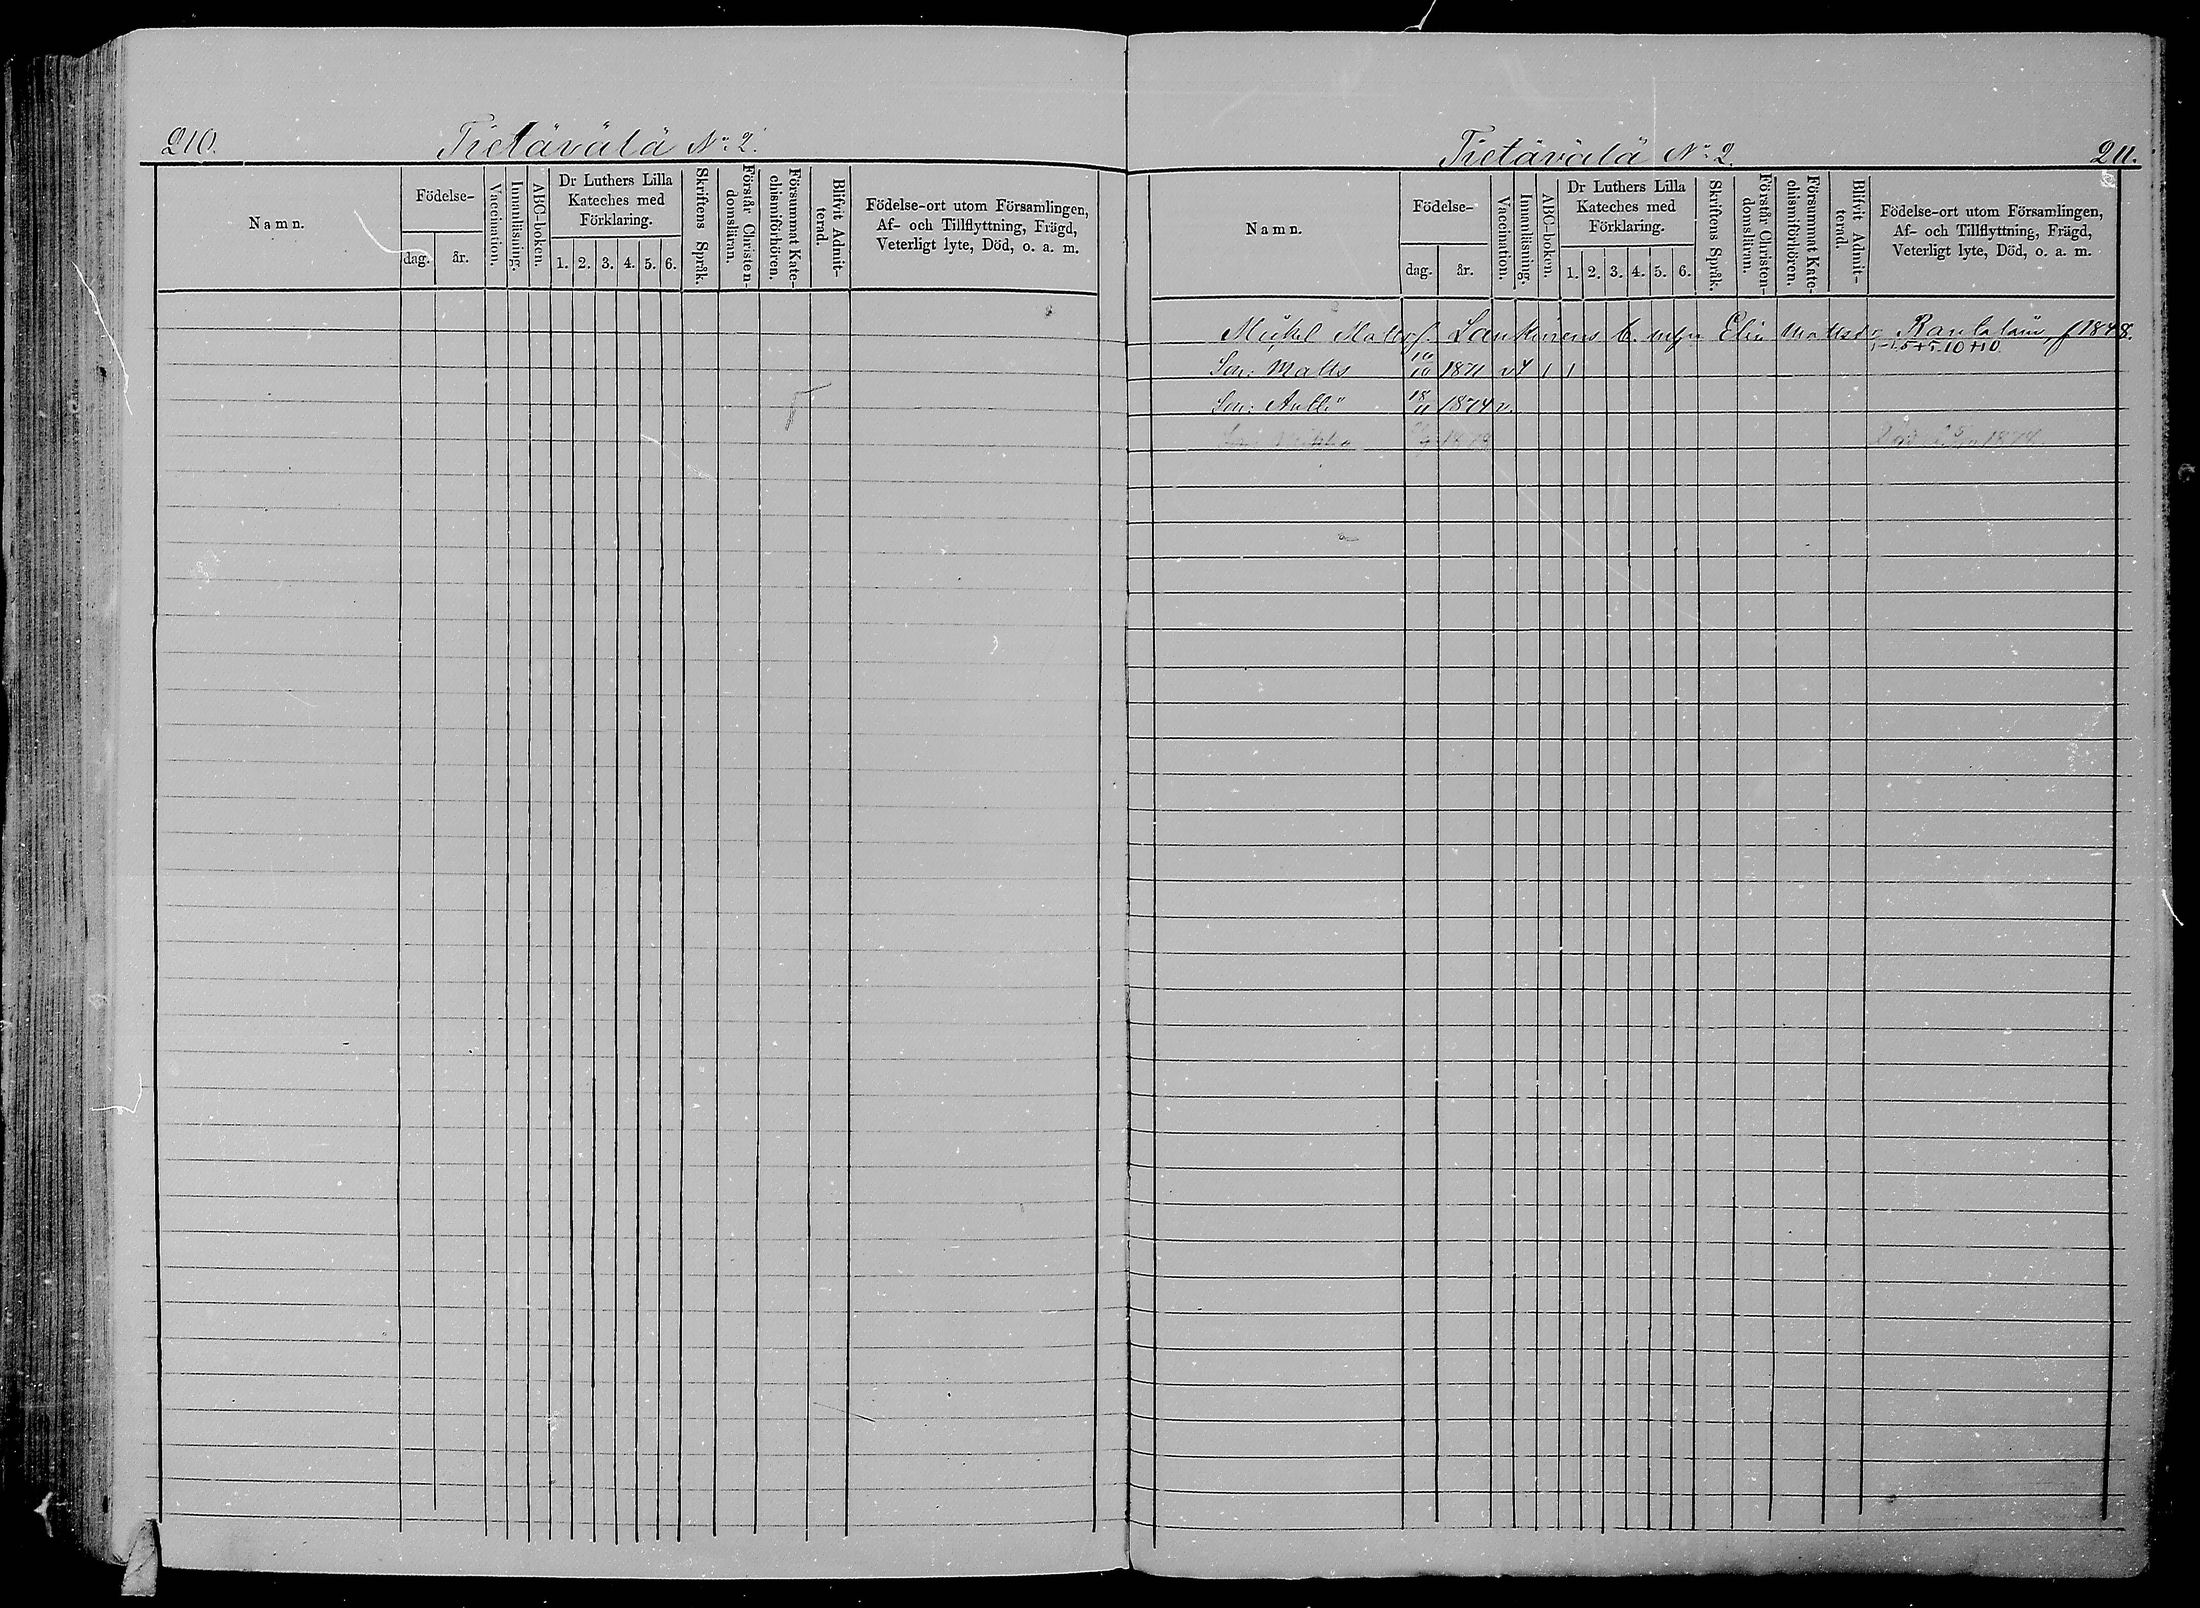 210.
Tietävälä No 2.
Namn.
Födelse-
dag. år.
Vaccination.
Innanläsning.
ABC-boken.
Dr Luthers Lilla
Kateches med
Förklaring.
1. 2. 3. 4. 5. 6.
Skriftens Språk.
Förstår Christen-
domsläran.
Försummat Kate-
chismiförhören.
Blifvit Admit-
terad.
Födelse-ort utom Församlingen,
Af- och Tillflyttning, Frägd,
Veterligt lyte, Död, o. a. m.
Tietävälä No 2.
211.
Namn.
Födelse-
dag. år.
Vaccination.
Innanläsning.
ABC-boken.
Dr Luthers Lilla
Kateches med
Förklaring.
1. 2. 3. 4. 5. 6.
Skriftens Språk.
Förstår Christen-
domsläran.
Försummat Kate-
chismiförhören.
Blifvit Admit-
terad.
Födelse-ort utom Församlingen,
Af- och Tillflyttning, Frägd,
Veterligt lyte, Död, o. a. m.
Mickel Lankinens Elin Mattsdr Rautalam, f 1848.
Son: Matts 1871
Son: Antti 18/11 1874 v.